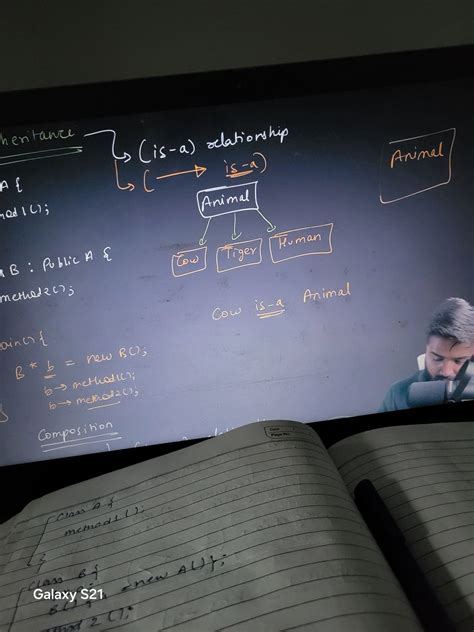 heritance
(is-a) relationship
( → is-a)
Animal
Animal
A {
method1();
Cow
Tiger
Human
B : Public A {
method2();
Cow is-a Animal
main() {
B * b = new B();
b→ method1();
b→ method2();
}
Composition
Class A {
method1();
}
Class B {
= new A();
2();
}
Galaxy S21